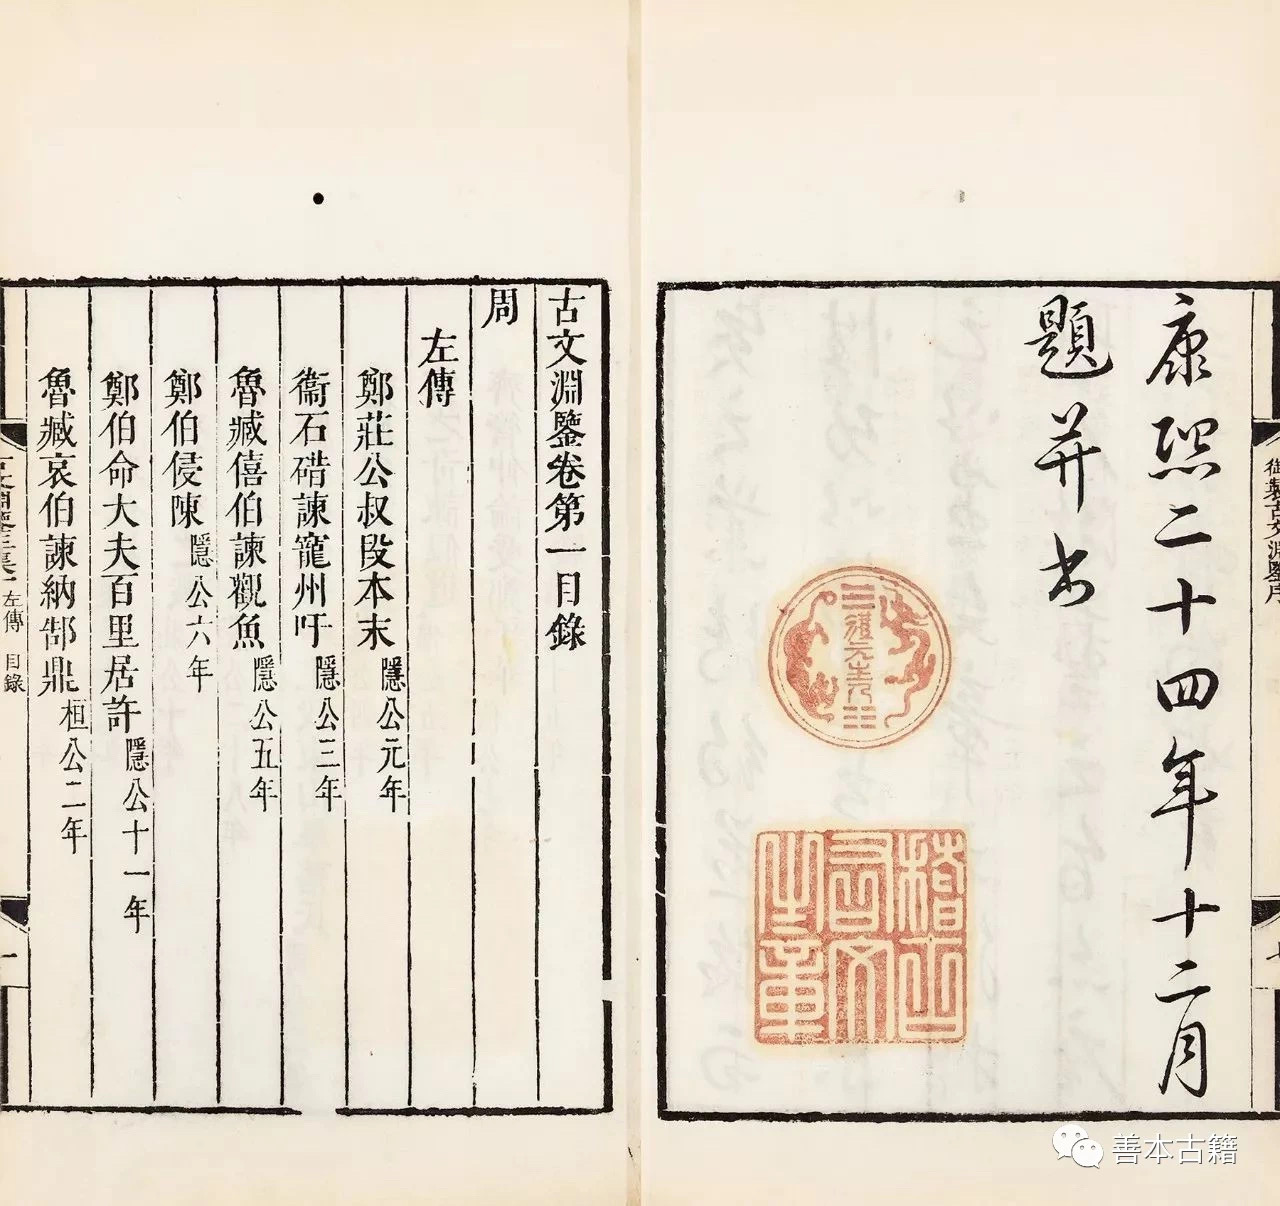 御製古文淵鑒序
康熙二十四年十二月
題并書
體元主人
稽古右文之章
古文淵鑒卷第一目錄
周
左傳
鄭莊公叔段本末 隱公元年
衞石碏諫寵州吁 隱公三年
魯臧僖伯諫觀魚 隱公五年
鄭伯侵陳 隱公六年
鄭伯命大夫百里居許 隱公十一年
魯臧哀伯諫納郜鼎 桓公二年
左傳 目錄
一
善本古籍